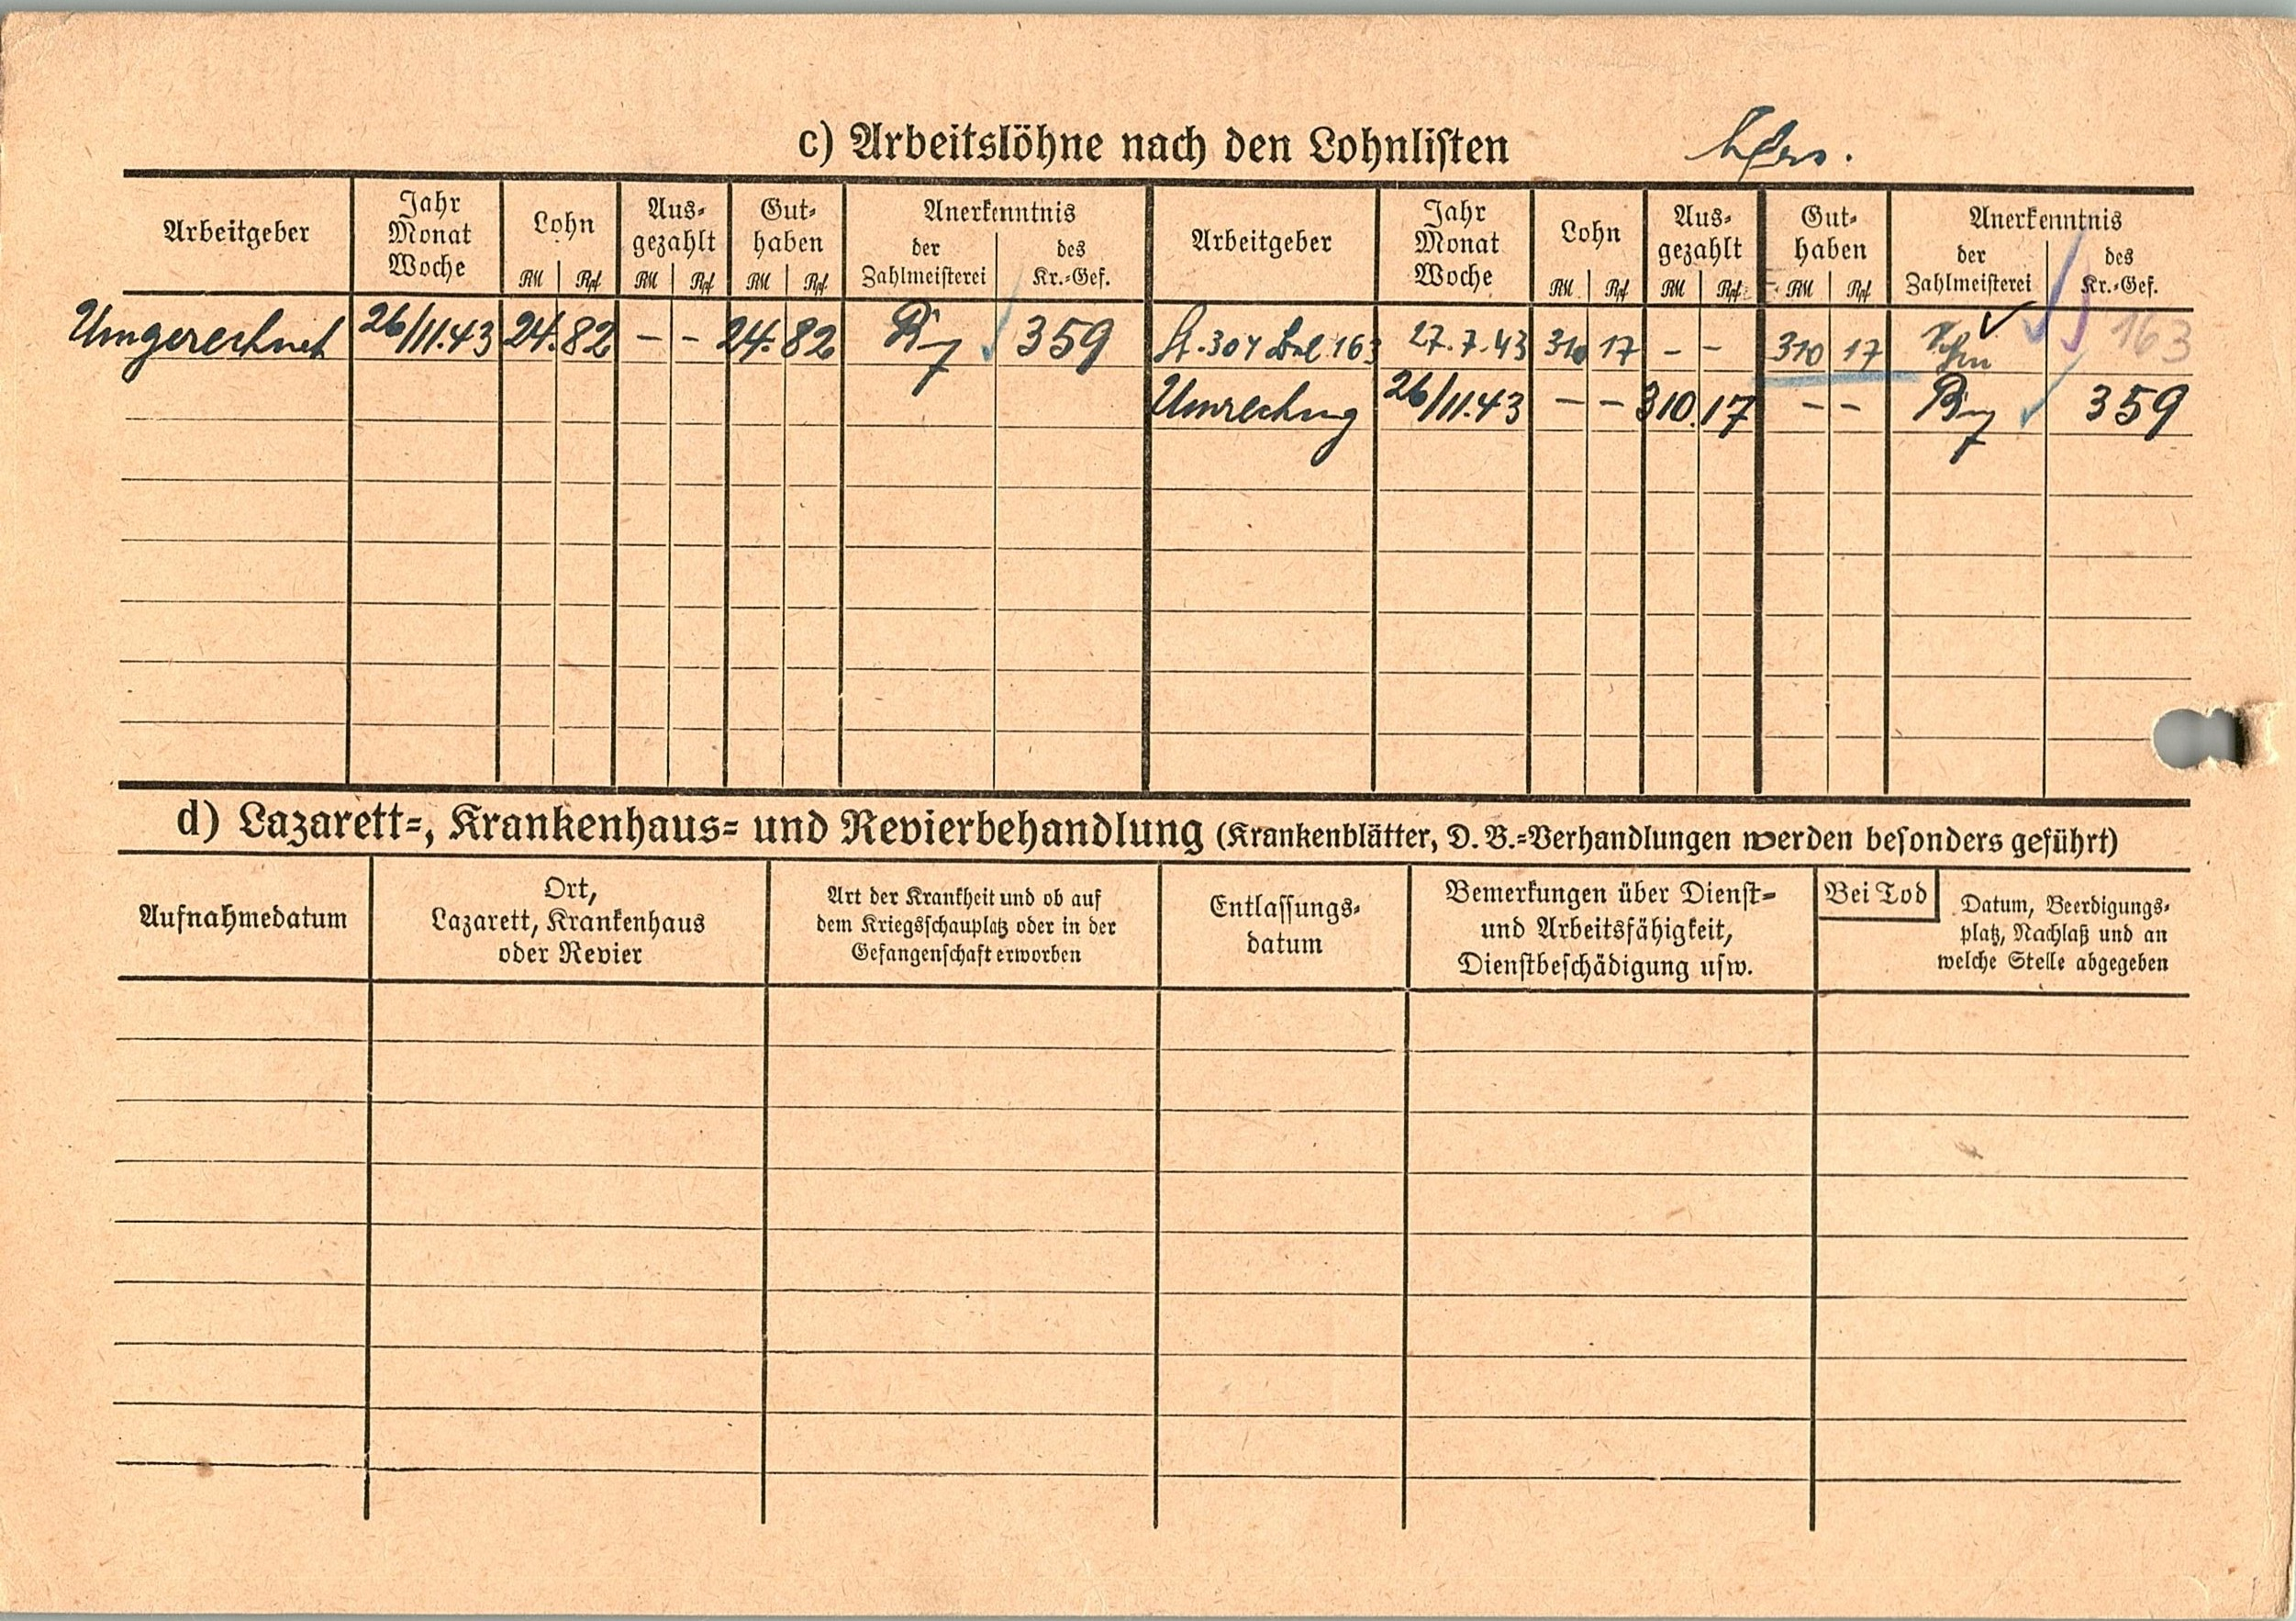 c) Arbeitslöhne nach den Lohnlisten
Arbeitgeber Jahr Monat Woche Lohn RM Rpf Aus- gezahlt RM Rpf Gut- haben RM Rpf Anerkenntnis der Zahlmeisterei des Kr.-Gef. Arbeitgeber Jahr Monat Woche Lohn RM Rpf Aus- gezahlt RM Rpf Gut- haben RM Rpf Anerkenntnis der Zahlmeisterei des Kr.-Gef.
Umgerechnet 26/11.43 24.82 - - 24.82 359 St. 304 163 27.7.43 310 17 - - 310 17 163
Umrechng 26/11.43 - - 310.17 - - 359
d) Lazarett-, Krankenhaus- und Revierbehandlung (Krankenblätter, D. B.-Verhandlungen werden besonders geführt)
Aufnahmedatum
Ort,
Lazarett, Krankenhaus
oder Revier
Art der Krankheit und ob auf
dem Kriegsschauplatz oder in der
Gefangenschaft erworben
Entlassungs-
datum
Bemerkungen über Dienst-
und Arbeitsfähigkeit,
Dienstbeschädigung usw.
Bei Tod
Datum, Beerdigungs-
platz, Nachlaß und an
welche Stelle abgegeben